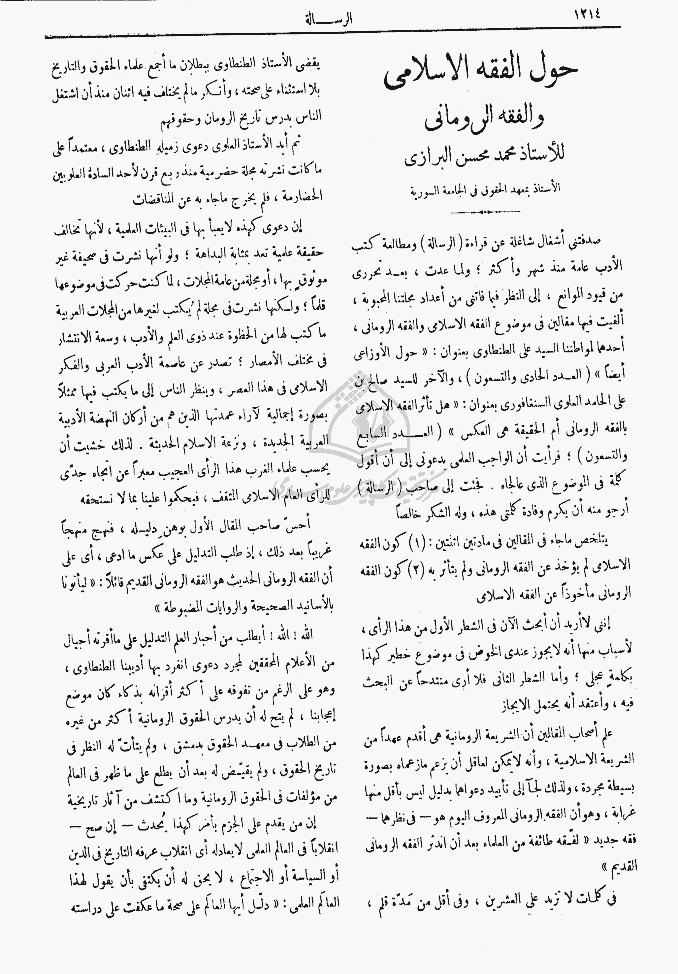 ١٢١٤
الرســالة
حول الفقه الاسلامى
والفقه الرومانى
للأستاذ محمد محسن البرازى
الأستاذ بمعهد الحقوق فى الجامعة السورية
صدفتنى أشغال شاغلة عن قراءة (الرسالة) ومطالعة كتب
الأدب عامة منذ شهر وأكثر ؛ ولما عدت ، بعــد تحررى
من قيود الوانع ، إلى النظر فيما فاتنى من أعداد مجلتنا المحبوبة ،
ألفيت فيها مقالين فى موضوع الفقه الاسلامى والفقه الرومانى ،
أحدها لمواطننا السيد على الطنطاوى بعنوان : « حول الأوزاعى
أيضاً » ( العــدد الحادى والتسعون ) ، والآخر للسيد صالح بن
على الحامد العلوى السنغافورى بعنوان : « هل تأثر الفقه الاسلامى
بالفقه الرومانى أم الحقيقة هى العكس » ( العــدد السابع
والتسعون ) ؛ فرأيت أن الواجب العلمى يدعونى إلى أن أقول
كلمة فى الموضوع الذى عالجاه . فجئت إلى صاحب ( الرسالة )
أرجو منه أن يكرم وفادة كلمتى هذه ، وله الشكر خالصاً
يتلخص ماجاء فى المقالين فى مادتين اثنتين : (١) كون الفقه
الاسلامى لم يؤخذ عن الفقه الرومانى ولم يتأثر به (٢) كون الفقه
الرومانى مأخوذاً عن الفقه الاسلامى
إننى لا أريد أن أبحث الآن فى الشطر الأول من هذا الرأى ،
لأسباب منها أنه لايجوز عندى الخوض فى موضوع خطير كهذا
بكلمة عجلى ؛ وأما الشطر الثانى فلا أرى منتدحاً عن البحث
فيه ، وأعتقد أنه يحتمل الايجاز
علم أصحاب المقالين أن الشريعة الرومانية هى أقدم عهداً من
الشريعة الاسلامية ، وأنه لايمكن لعاقل أن يزعم مازعماه بصورة
بسيطة مجردة ، ولذلك لجآ إلى تأييد دعواهما بدليل ليس بأقل منها
غرابة ، وهو أن الفقه الرومانى المعروف اليوم هو — فى نظرها —
فقه جديد « لفّقه طائفة من العلماء بعد أن اندثر الفقه الرومانى
القديم »
فى كلمـات لا تزيد على العشرين ، وفى أقل من مَدّة قلم ،
يقضى الأستاذ الطنطاوى ببطلان ما أجمع علماء الحقوق والتاريخ
بلا استثناء على صحته ، وأنكر مالم يختلف فيه اثنان منذ أن اشتغل
الناس بدرس تاريخ الرومان وحقوقهم
ثم أيد الأستاذ العلوى دعوى زميله الطنطاوى ، معتمداً على
ما كانت نشرته مجلة حضرمية منذ ربع قرن لأحد السادة العلويين
الحضارمة ، فلم يخرج ماجاء به عن المناقضات
إن دعوى كهذه لايعبأ بها فى البيئات العلمية ، لأنها تخالف
حقيقة علمية تعد بمثابة البداهة ؛ ولو أنها نشرت فى صحيفة غير
موثوق بها ، أو مجلة من عامة المجلات ، لما كنت حركت فى موضوعها
قلماً ؛ ولكنها نشرت فى مجلة لم يُكتب لغيرها من المجلات العربية
ما كتب لها من الحظوة عند ذوى العلم والأدب ، وسعة الانتشار
فى مختلف الأمصار ؛ تصدر عن عاصمة الأدب العربى والفكر
الاسلامى فى هذا العصر ، وينظر الناس إلى ما يكتب فيها ممثلاً
بصورة إجمالية لآراء عمدتها الذين هم من أركان النهضة الأدبية
العربية الجديدة ، ونزعة الاسلام الحديثة . لذلك خشيت أن
يحسب علماء الغرب هذا الرأى العجيب معبراً عن اتجاه جدّى
للرأى العام الاسلامى المثقف ، فيحكموا علينا بما لا نستحقه
أحسّ صاحب المقال الأول بوهن دليــله ، فنهج منهجاً
غريباً بعد ذلك ، إذ طلب التدليل على عكس ما ادعى ، أى على
أن الفقه الرومانى الحديث هو الفقه الرومانى القديم قائلاً : « ليأتونا
بالأسانيد الصحيحة والروايات المضبوطة »
الله ! الله ! أيطلب من أحبار العلم التدليل على ما أقرته أجيال
من الأعلام المحققين لمجرد دعوى انفرد بها أديبنا الطنطاوى ،
وهو على الرغم من تفوقه على أكثر أقرانه بذكاء كان موضع
إعجابنا ، لم يتح له أن يدرس الحقوق الرومانية أكثر من غيره
من الطلاب فى معهــد الحقوق بدمشق ، ولم يتأتّ له النظر فى
تاريخ الحقوق ، ولم يقيّض له بعد أن يطلع على ما ظهر فى العالم
من مؤلفات فى الحقوق الرومانية وما اكتشف من آثار تاريخية
إن من يقدم على الجزم بأمر كهذا يُحدث — إن صح —
انقلاباً فى العالم العلمى لايعادله أى انقلاب عرفه التاريخ فى الدين
أو السياسة أو الاجتماع ، لا يحق له أن يكتفى بأن يقول لهذا
العالم العلمى : « دلّل أيها العالم على صحة ما عكفت على دراسته